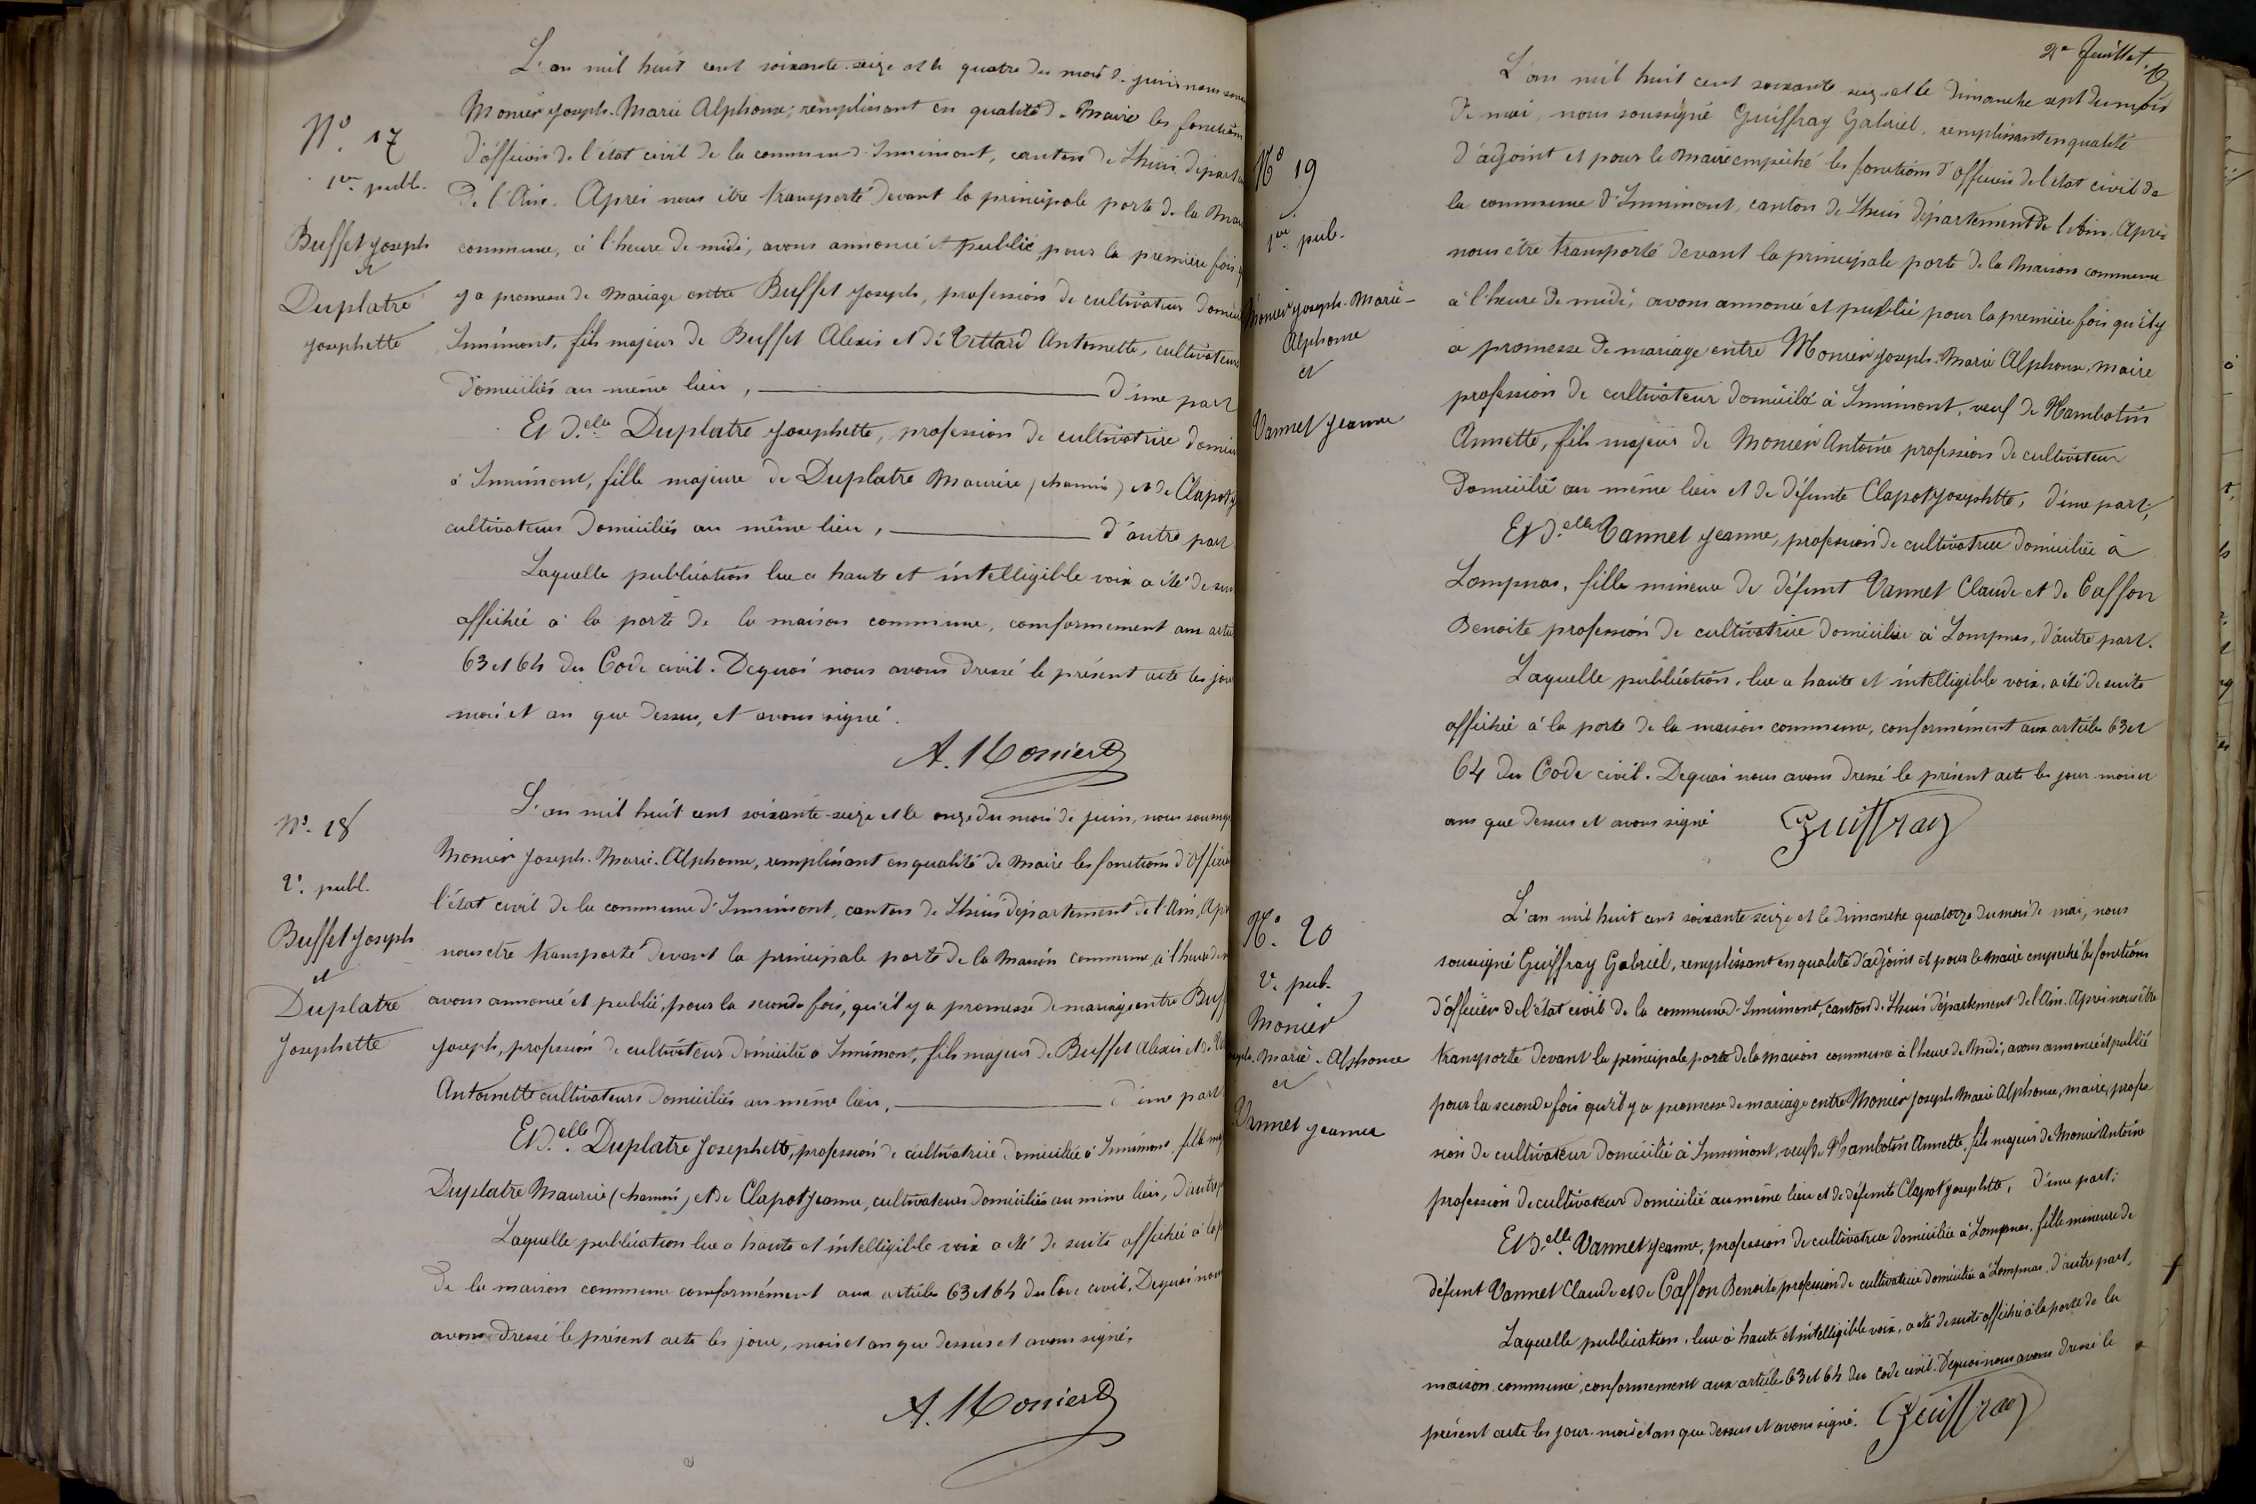 N° 17
1re publ.
Buffet Joseph
et
Duplatre
Josephette
L'an mil huit cent soixante-seize et le quatre du mois de juin nous sous
Monier Joseph-Marie Alphonse, remplissant en qualité de Maire les fonctions
d'officier de l'état civil de la commune d'Innimont, canton de Lhuis, départ
de l'Ain. Après nous être transporté devant la principale porte de la Mai
commune, à l'heure de midi, avons annoncé et publié, pour la première fois, q
y a promesse de mariage entre Buffet Joseph, profession de cultivateur domici
Innimont, fils majeur de Buffet Alexis et de Tettard Antoinette, cultivateurs
domiciliés au même lieu, d'une part
Et D.elle Duplatre Josephette, profession de cultivatrice domici
à Innimont, fille majeure de Duplatre Maurice (chemin) et de Clapot J
cultivateurs domiciliés au même lieu, d'autre part
Laquelle publication lue a haute et intelligible voix a été de sui
affichée à la porte de la maison commune, conformement aux artic
63 et 64 du Code civil. De quoi nous avons dressé le présent acte les jou
mois et an que dessus, et avons signé.
A. Monier
N° 18
2e. publ.
Buffet Joseph
et
Duplatre
Josephette
L'an mil huit cent soixante-seize et le onze du mois de juin, nous soussig
Monier Joseph-Marie-Alphonse, remplissant en qualité de Maire les fonctions d'officier
l'état civil de la commune d'Innimont, canton de Lhuis département de l'Ain, Apr
nous être transporté devant la principale porte de la Maison commune, à l'heure de m
avons annoncé et publié, pour la seconde fois, qu'il y a promesse de mariage entre Buff
Joseph, profession de cultivateur domicilié à Innimont, fils majeur de Buffet Alexis et de Te
Antoinette cultivateurs domiciliés au même lieu, d'une part
Et D.elle Duplatre Josephette, profession de cultivatrice domiciliée à Innimont, fille maj
Duplatre Maurice (chemin) et de Clapot Jeanne, cultivateurs domiciliés au même lieu, d'autre p
Laquelle publication lue a haute et intelligible voix a été de suite affichée à la p
de la maison commune conformément aux articles 63 et 64 du Code civil. De quoi nous
avons dressé le présent acte les jour, mois et an que dessus et avons signé.
A. Monier
2e feuillet
N° 19
1re pub.
Monier Joseph-Marie-
Alphonse
et
Vannet Jeanne
L'an mil huit cent soixante seize et le dimanche sept du mois
de mai, nous soussigné Guiffray Gabriel, remplissant en qualité
d'adjoint et pour le Maire empêché les fonctions d'officier de l'état civil de
la commune d'Innimont, canton de Lhuis département de l'Ain. Après
nous être transporté devant la principale porte de la Maison commune
à l'heure de midi, avons annoncé et publié pour la première fois qu'il y
a promesse de mariage entre Monier Joseph-Marie Alphonse, maire
profession de cultivateur domicilié à Innimont, veuf de Hambotin
Annette, fils majeur de Monier Antoine profession de cultivateur
domicilié au même lieu et de défunte Clapot Josephtte, d'une part;
Et D.elle Vannet Jeanne, profession de cultivatrice domiciliée à
Lompnas, fille mineure de défunt Vannet Claude et de Caffon
Benoite profession de cultivatrice domiciliée à Lompnas, d'autre part.
Laquelle publication, lue a haute et intelligible voix, a été de suite
affichée à la porte de la maison commune, conformément aux articles 63 et
64 du Code civil. De quoi nous avons dressé le présent acte les jour mois et
ans que dessus et avons signé
Guiffray
N° 20
2e. pub.
Monier
Joseph-Marie-Alphonse
et
Vannet Jeanne
L'an mil huit cent soixante seize et le dimanche quatorze du mois de mai, nous
soussigné Guiffray Gabriel, remplissant en qualité d'adjoint et pour le Maire empêché les fonctions
d'officier de l'état civil de la commune d'Innimont, canton de Lhuis département de l'Ain. Après nous être
transporté devant la principale porte de la maison commune à l'heure de midi, avons annoncé et publié
pour la seconde fois qu'il y a promesse de mariage entre Monier Joseph Marie Alphonse, maire, profes
sion de cultivateur domicilié à Innimont, veuf de Hambotin Annette, fils majeur de Monier Antoine
profession de cultivateur domicilié au même lieu et de défunte Clapot Josephtte, d'une part;
Et D.elle Vannet Jeanne, profession de cultivatrice domiciliée à Lompnas, fille mineure de
défunt Vannet Claude et de Caffon Benoite profession de cultivatrice domiciliée à Lompnas, d'autre part,
Laquelle publication, lue à haute et intelligible voix, a été de suite affichée à la porte de la
maison commune, conformement aux articles 63 et 64 du Code civil. De quoi nous avons dressé le
présent acte les jour mois et an que dessus et avons signé. Guiffray